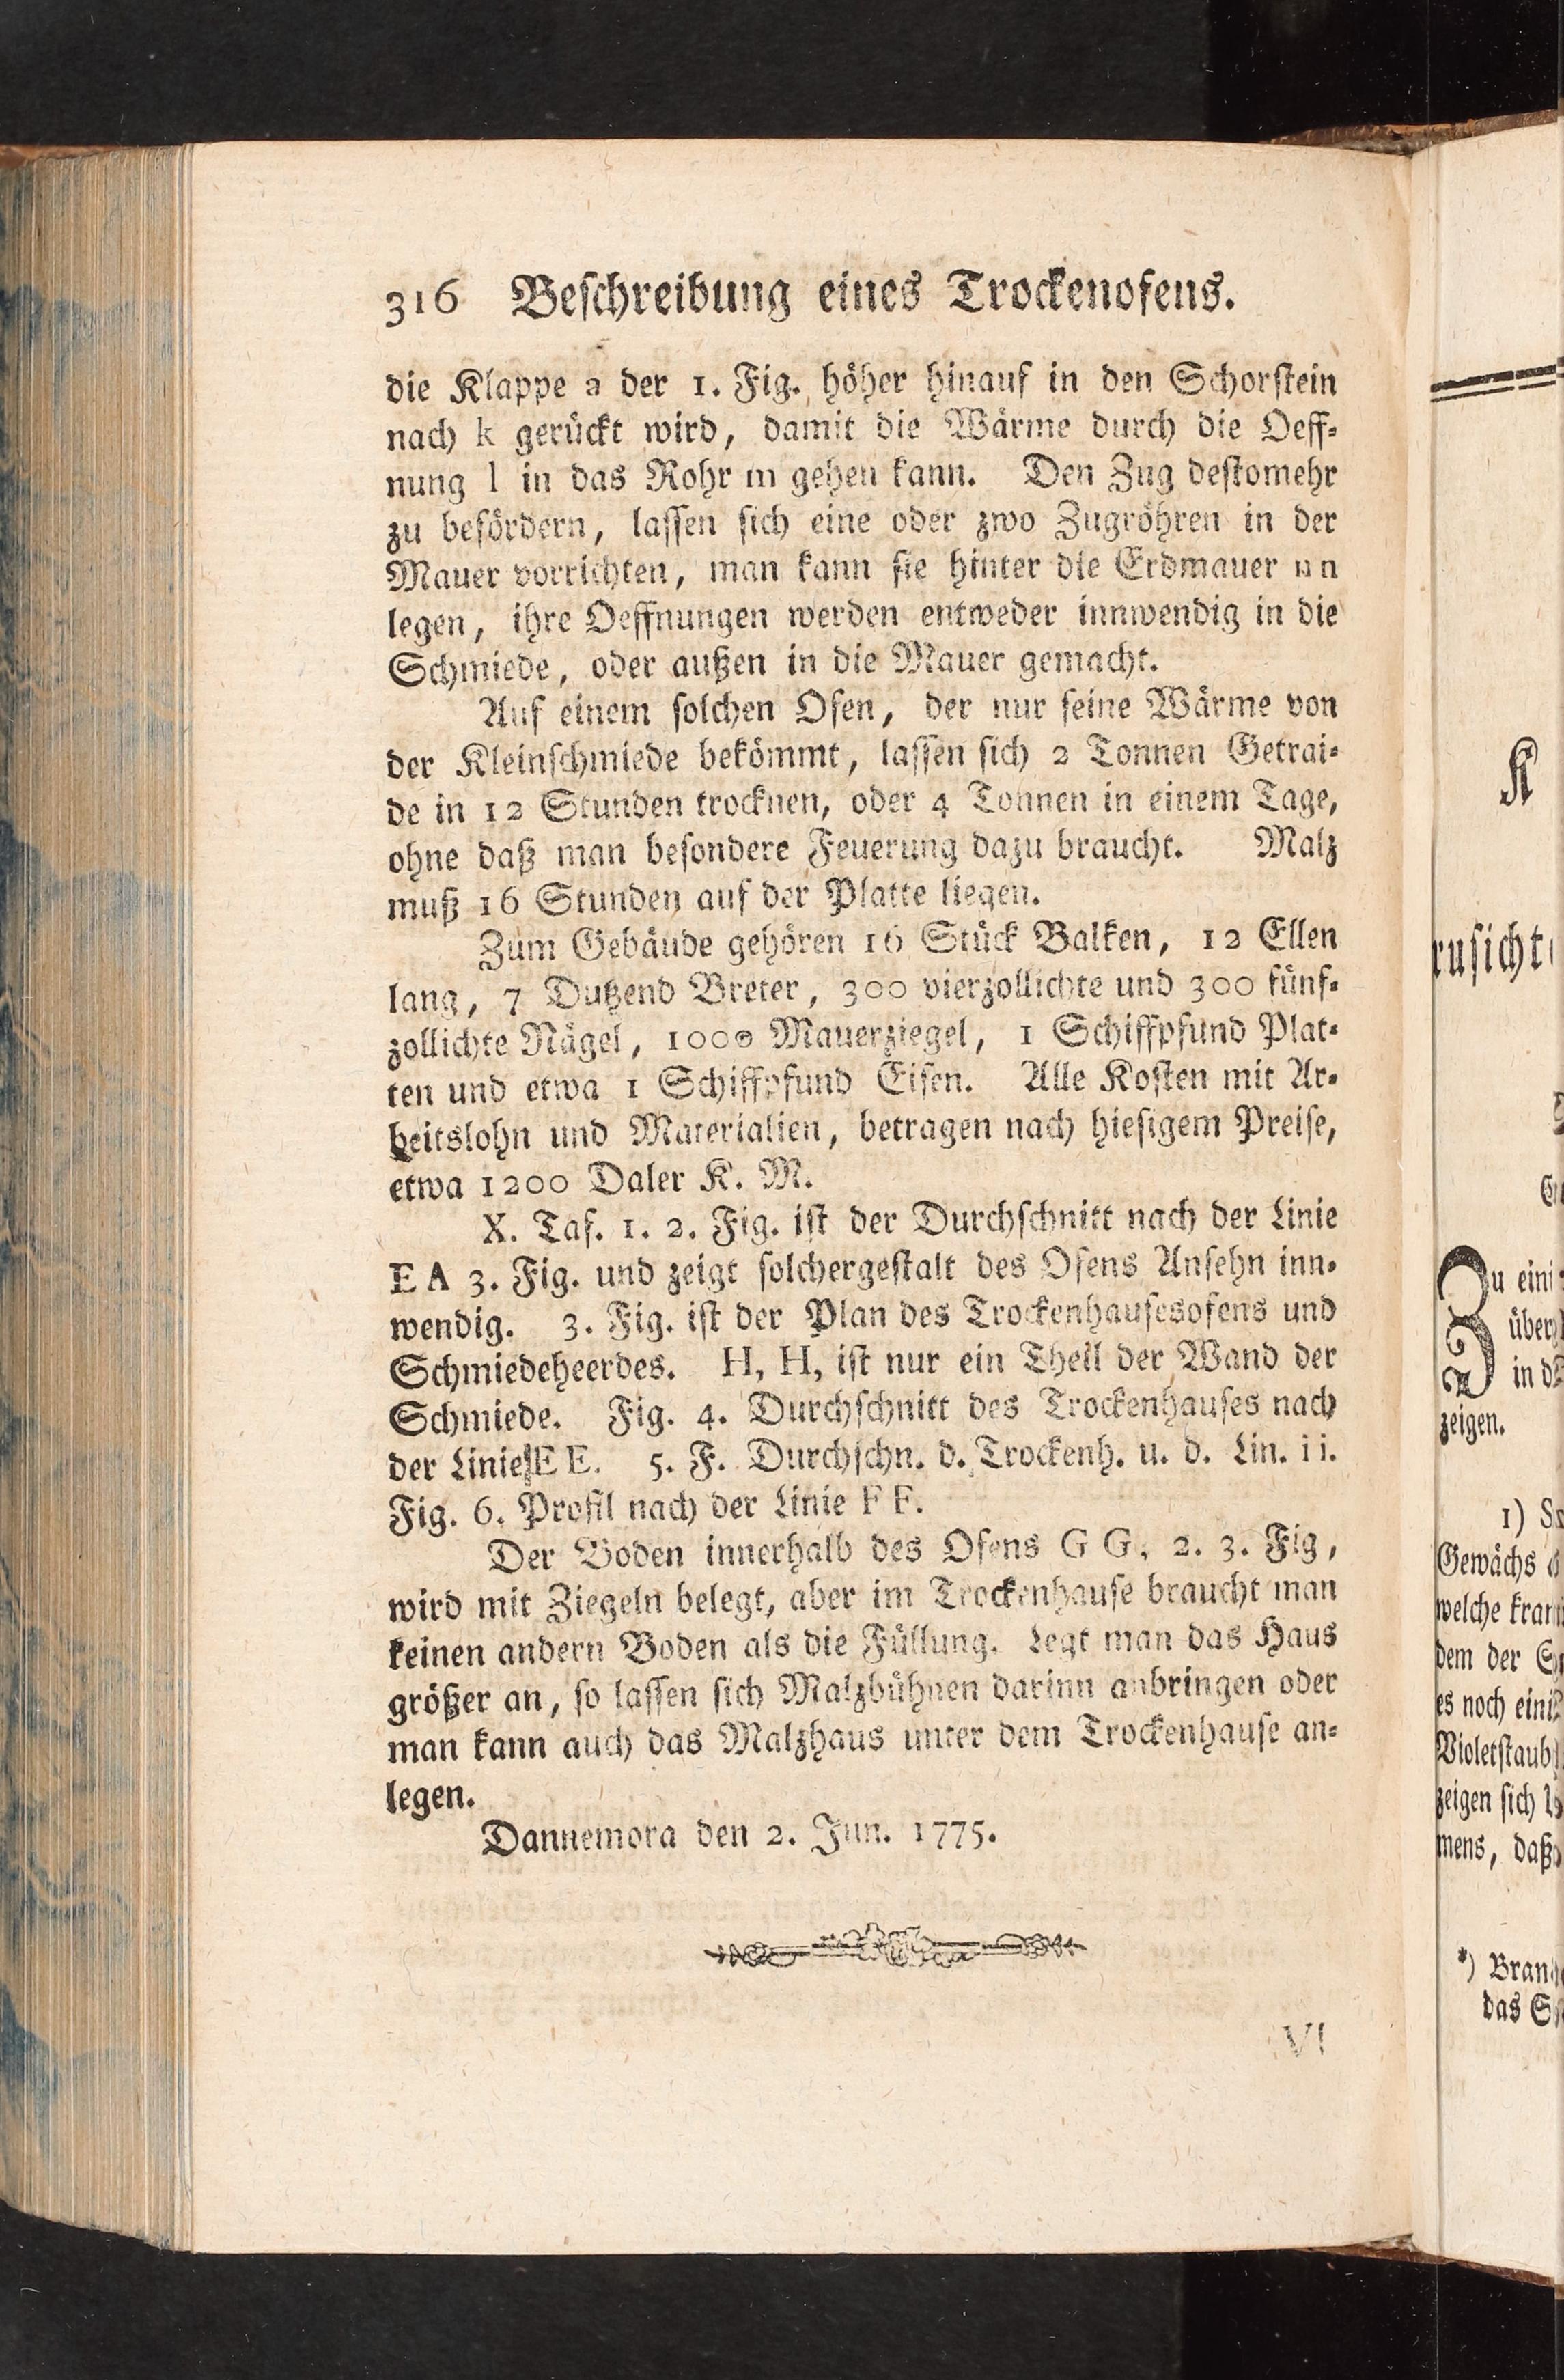 316 Beſchreibung eines Trockenofens.
die Klappe a der 1. Fig. höher hinauf in den Schorſtein
nach k gerückt wird, damit die Wärme durch die Oeff⸗
nung l in das Rohr m gehen kann. Den Zug deſtomehr
zu befördern, laſſen ſich eine oder zwo Zugröhren in der
Mauer vorrichten, man kann ſie hinter die Erdmauer n n
legen, ihre Oeffnungen werden entweder innwendig in die
Schmiede, oder außen in die Mauer gemacht.
Auf einem ſolchen Ofen, der nur ſeine Wärme von
der Kleinſchmiede bekömmt, laſſen ſich 2 Tonnen Getrai⸗
de in 12 Stunden trocknen, oder 4 Tonnen in einem Tage,
ohne daß man beſondere Feuerung dazu braucht. Malz
muß 16 Stunden auf der Platte liegen.
Zum Gebäude gehören 16 Stück Balken, 12 Ellen
lang, 7 Dutzend Breter, 300 vierzollichte und 300 fünf⸗
zollichte Nägel, 1000 Mauerziegel, 1 Schiffpfund Plat⸗
ten und etwa 1 Schiffpfund Eiſen. Alle Koſten mit Ar⸗
beitslohn und Materialien, betragen nach hieſigem Preiſe,
etwa 1200 Daler K. M.
X. Taf. 1. 2. Fig. iſt der Durchſchnitt nach der Linie
E A 3. Fig. und zeigt ſolchergeſtalt des Ofens Anſehn inn⸗
wendig. 3. Fig. iſt der Plan des Trockenhauſesofens und
Schmiedeheerdes. H, H, iſt nur ein Theil der Wand der
Schmiede. Fig. 4. Durchſchnitt des Trockenhauſes nach
der Linie E E. 5. F. Durchſchn. d. Trockenh. u. d. Lin. i i.
Fig. 6. Profil nach der Linie F F.
Der Boden innerhalb des Ofens G G, 2. 3. Fig,
wird mit Ziegeln belegt, aber im Trockenhauſe braucht man
keinen andern Boden als die Füllung. Legt man das Haus
größer an, ſo laſſen ſich Malzbühnen darinn anbringen oder
man kann auch das Malzhaus unter dem Trockenhauſe an⸗
legen.
Dannemora den 2. Jun. 1775.
VI
K
Zu
in
zeigen.
1)
Gewächs
welche
dem der
es noch
zeigen ſich
mens, daß
*)
das